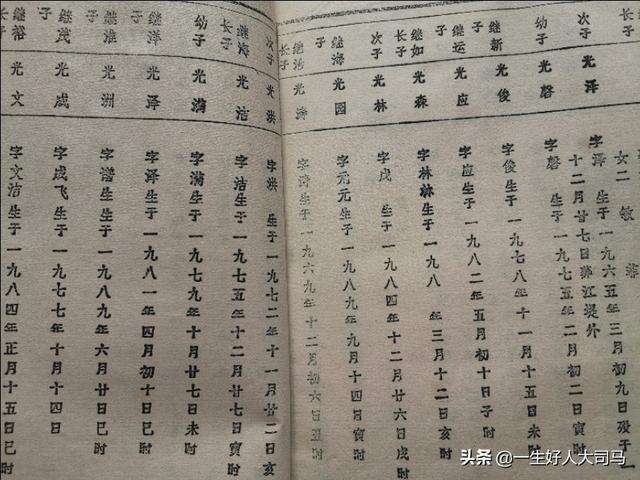 女二 敏
次子 光泽 字泽 生于一九六五年 月初九日殁于一
十二月廿日葬江堤外
幼子 光磬 字磬 生于一九七五年二月初二日寅时
继新子 光俊 字俊生于一九七八年十一月十五日未时
继运子 光应 字应生于一九八二年五月初十日子时
继如长子 光森 字林林生于一九八 年三月十二日亥时
次子 光林 字戌 生于一九八四年十二月廿六日戌时
继海子 光园 字元元生于一九八九年九月十四日寅时
继 长子 光涛 字涛生于一九六九年十二月初六日丑时
次子 光洪 字洪 生于一九七二年十一月廿二日亥
继海长子 光洁 字洁生于一九七五年十二月廿七日寅时
幼子 光满 字满生于一九七九年十月廿七日未时
继泽子 光泽 字泽生于一九八一年四月初十日巳时
继淮子 光洲 字 生生于一九八九年六月廿日巳时
继茂子 光成 字成飞生于一九七七年十月十四日
继裕长子 光文 字文洁生于一九八四年正月十五日巳时
头条 @一生好人大司马